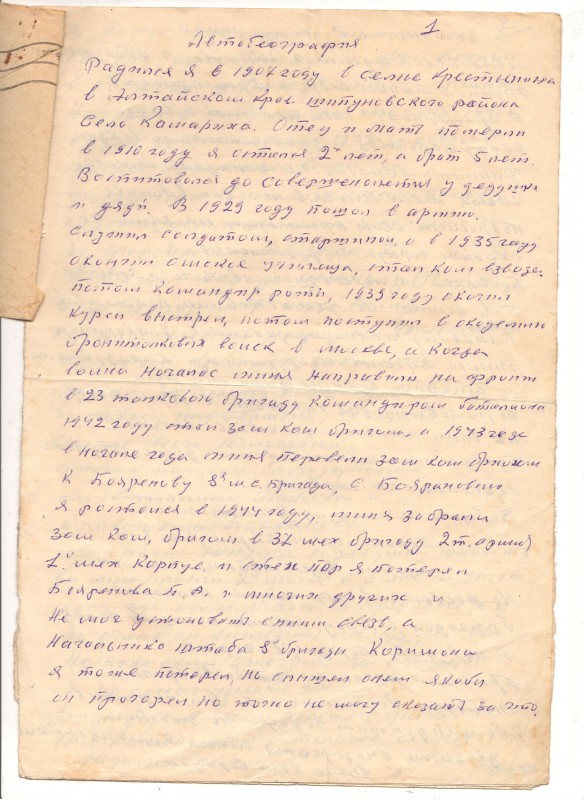 1
Автобеография
Радился я в 1907 году в семье крестьянина
в Алтайском крае шипуновского района
село Камариха. Отец и мать померли
в 1910 году я остался 2х лет, а брат 5 лет.
Воспитовался до совершенолетия у дедушки
и дяди. В 1929 году пошол в армию.
служил солдатом, старшиной, а в 1935 году
окончил омское училища, стал ком взвода.
потом командир роты, 1939 году окончил
курсы выстрел, потом поступил в академию
бронетонковых войск в Москве, а когда
война началас миня направили на фронт
в 23 танковою бригаду командиром баталиона
1942 году стал зам ком бригады, а 1943 году
в начале года миня перевели зам ком бригады
к Бояренову 8ю м.с. бригада, с Бояриновым
я ростался в 1944 году, миня забрали
зам ком, бригады в 37 мех бригаду 2т. армия
1й мех корпус и с тех пор я потерял
Бояренова П. А. и многих других и
не мог устоновить с ними свезь, а
Начальнико штаба 8й бригады Каришона
я тоже потерял, но слышел он
он прогорел но точно не могу сказать за что.